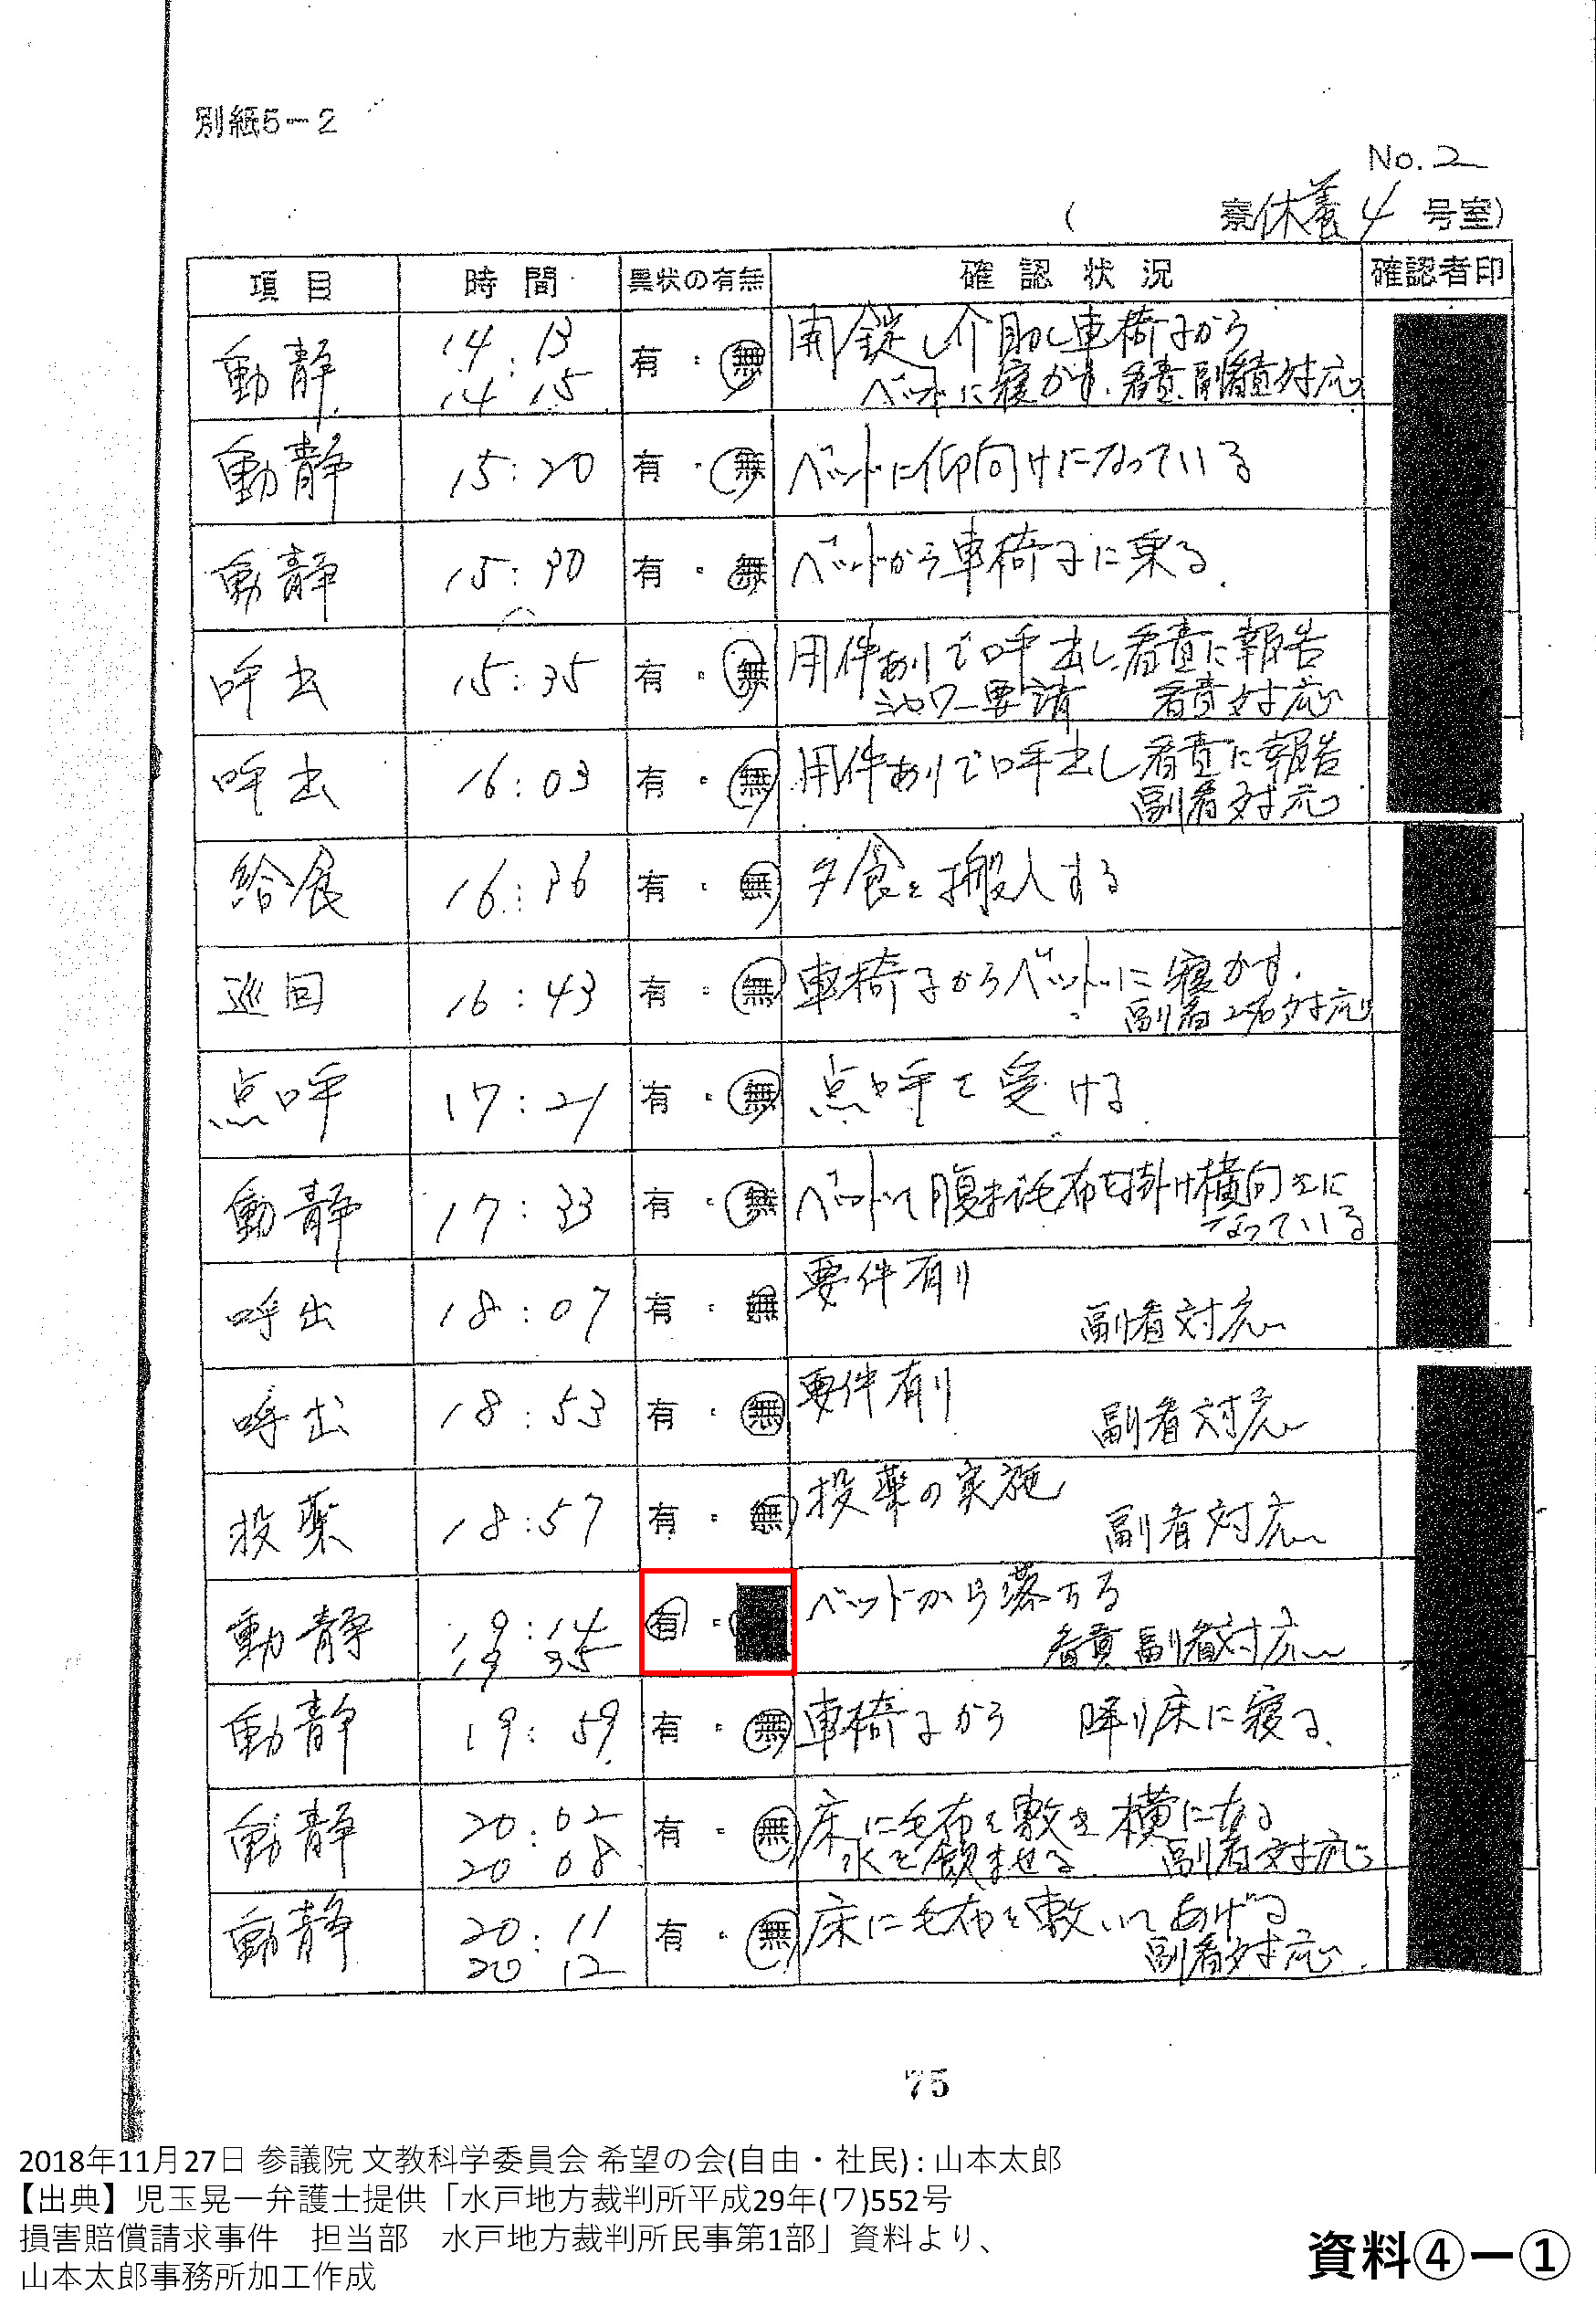 別紙5－2
No.2
( 寮休養4 号室)
項目 時間 異状の有無 確認状況 確認者印
動静 14:13 有・無 開錠し介助し車椅子から
14 15 ベットに寝かす、看責、副看責対応
動静 15:20 有・無 ベットに仰向けになっている
動静 15:30 有・無 ベットから車椅子に乗る。
呼出 15:35 有・無 用件ありで呼出し、看責に報告
シャワー要請 看責対応
呼出 16:03 有・無 用件ありで呼出し看責に報告
副看対応
給食 16:36 有・無 夕食を搬入する
巡回 16:43 有・無 車椅子からベットに寝かす.
副看2名対応
点呼 17:21 有・無 点呼を受ける
動静 17:33 有・無 ベットで腹まで毛布を掛け横向きに
なっている
呼出 18:07 有・無 要件有り
副看対応
呼出 18:53 有・無 要件有り
副看対応
投薬 18:57 有・無 投薬の実施
副看対応
動静 19:14 有・ ベットから落ちる
19 35 看責 副看対応
動静 19:59 有・無 車椅子から 降り床に寝る、
動静 20:02 有・無 床に毛布を敷き横になる
20 08 水を飲ませる 副看対応
動静 20:11 有・無 床に毛布を敷いてあげる
20 12 副看対応.
75
2018年11月27日 参議院 文教科学委員会 希望の会(自由・社民) : 山本太郎
【出典】児玉晃一弁護士提供「水戸地方裁判所平成29年(ワ)552号
損害賠償請求事件　担当部　水戸地方裁判所民事第1部」資料より、
山本太郎事務所加工作成
資料④ー①